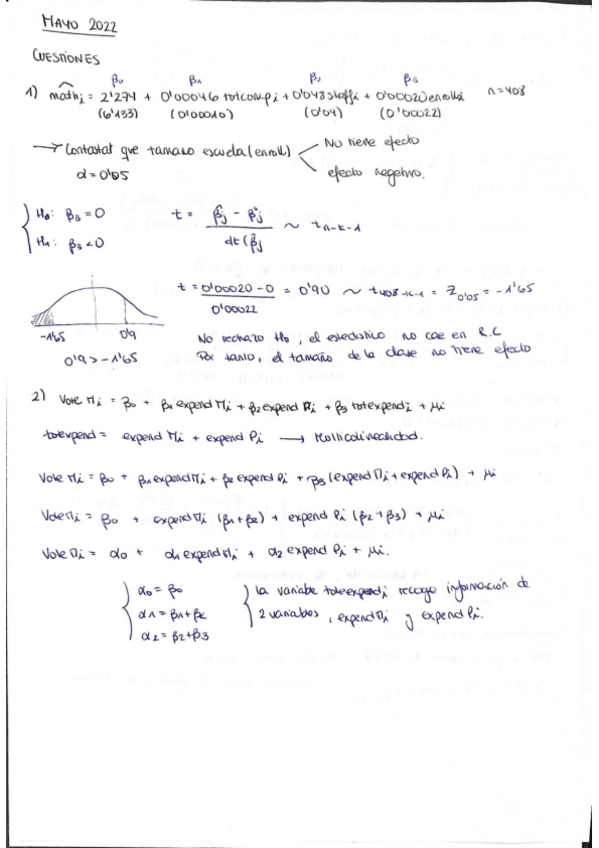 MAYO 2022
CUESTIONES
β₀ β₁ β₂ β₃
1) matĥᵢ = 2'274 + 0'00046 totcompᵢ + 0'048 staffᵢ + 0'00020 enrollᵢ n = 408
(6'133) (0'00010) (0'04) (0'00022)
→ Contrastar que tamaño escuela (enroll) < No tiene efecto
α = 0'05 efecto negativo.
H₀: β₃ = 0 t = β̂j - β°j / dt(β̂j ~ tn-k-1
H₁: β₃ < 0
t = 0'00020 - 0 / 0'00022 = 0'90 ~ t408-k-1 = Z0'05 = -1'65
-1'65 0'9
0'9 > -1'65
No rechazo H₀, el estadístico no cae en R.C
Por tanto, el tamaño de la clase no tiene efecto
2) Vote Mᵢ = β₀ + β₁ expend Mᵢ + β₂ expend Pᵢ + β₃ totexpendᵢ + μᵢ
totexpend = expend Mᵢ + expend Pᵢ → Multicolinealidad.
Vote Mᵢ = β₀ + β₁ expend Mᵢ + β₂ expend Pᵢ + β₃ (expend Mᵢ + expend Pᵢ) + μᵢ
Vote Mᵢ = β₀ + expend Mᵢ (β₁ + β₂) + expend Pᵢ (β₂ + β₃) + μᵢ
Vote Mᵢ = α₀ + α₁ expend Mᵢ + α₂ expend Pᵢ + μᵢ.
α₀ = β₀
α₁ = β₁ + β₂
α₂ = β₂ + β₃
La variable totexpendᵢ recoge información de
2 variables, expend Mᵢ y expend Pᵢ.